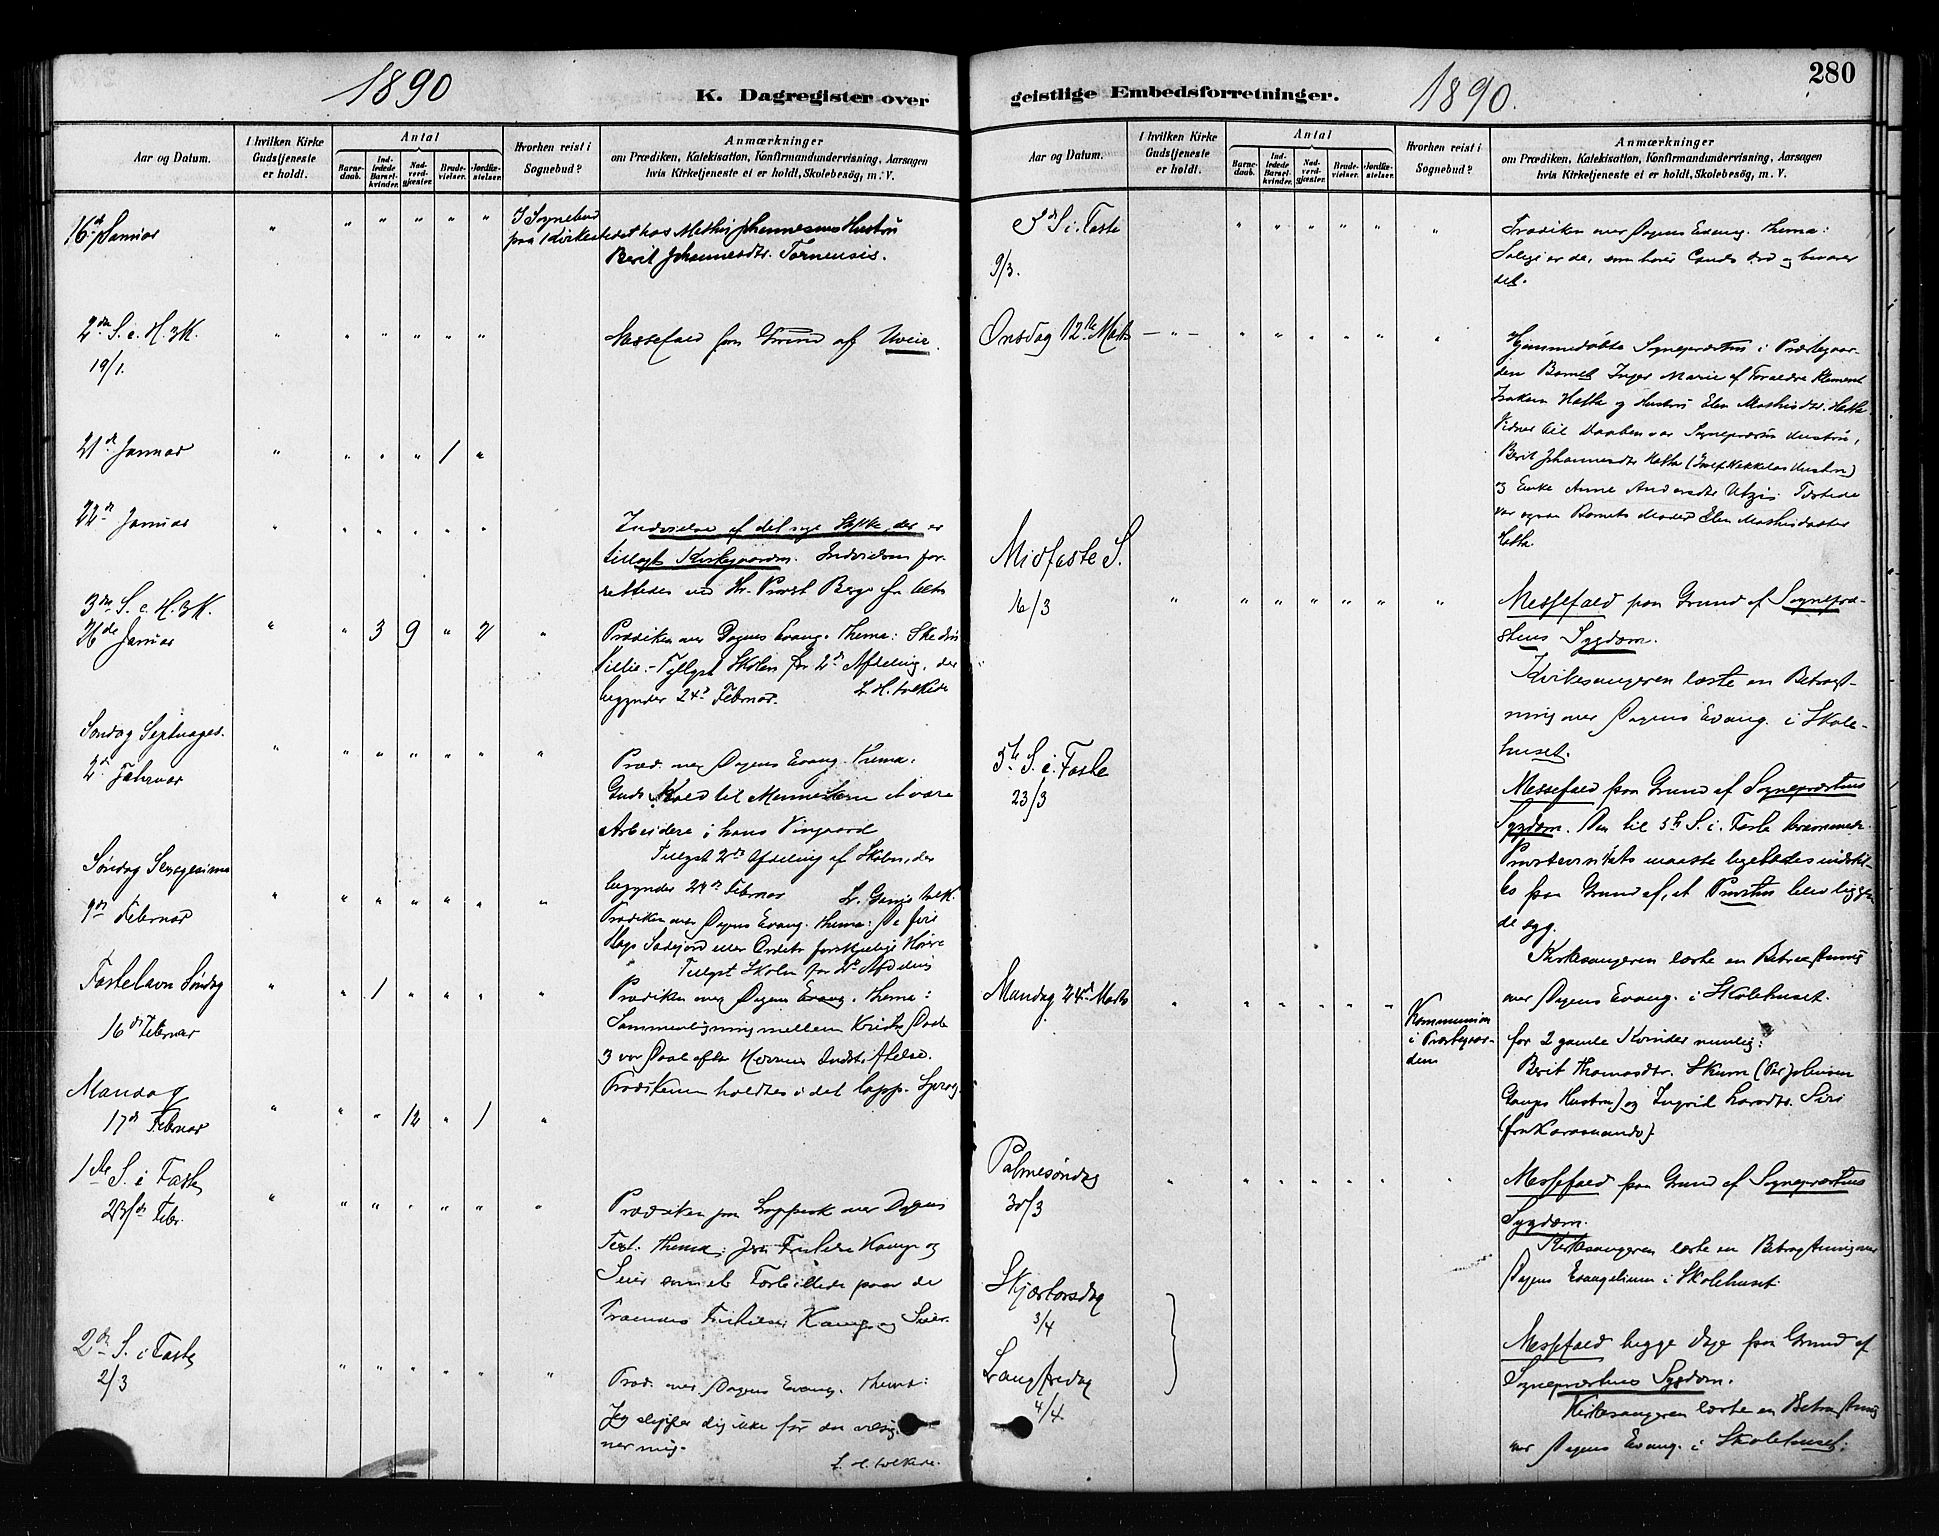 1890
K. Dagregister over
Aar og Datum.
I hvilken Kirke Gudstjeneste er holdt.
Antal
Barne-daab.
Ind-ledede Barsel-kvinder.
Nad-verd-gjæster.
Brude-vielser.
Jordfæ-stelser.
Hvorhen reist i Sognebud?
Anmærkninger
om Prædiken, Katekisation, Konfirmandundervisning, Aarsagen
hvis Kirketjeneste ei er holdt, Skolebesøg, m. V.
16de Januar
" " " " " "
I Sognebud
paa Kirkestedet hos Mathis Johannesens Hustru
Berit Johannesdtr. Tornensis.
2den S. e. H. 3 K.
19/1.
" " " " " "
Messefald paa Grund af Uveir.
21de Januar
" " " " 1 "
22de Januar
" " " " " "
Indvielse af det nye Stykke, der er
tillagt Kirkegaarden. Indvielsen for-
rettedes ved Hr. Provst Berge fra Alten
3die S. e. H. 3 K.
26de Januar
" " 3 9 " 2 "
Prædiken over Dagens Evang. Thema: Ske din
Villie. - Tyllyst Skolen for 2den Afdeling, der
begynder 24de Februar. L. H. tolkede
Søndag Septuages.
2den Februar
" " " " " " "
Præd. over Dagens Evang. Thema:
Guds Kald til Menneskene at være
Arbeidere i hans Vingaard
Tillyst 2den Afdeling af Skolen, der
begynder 24de Februar
Søndag Sexagesima
9de Februar
" " " " " " "
Prædiken over Dagens Evang. Thema: De fire
Slags Sædejord eller Ordets forskjellige Hørere
Tillyst Skolen for 2den Afdeling
Fastelavn Søndag
16de Februar
" " 1 " " " "
Prædiken over Dagens Evang. Thema:
Sammenligning mellem Kristi Daab
og vor Daab efter Herrens Indstiftelse.
Prædikenen holdtes i det lapp. Sprog.
Mandag
17de Februar
" " " 12 " 1 "
1ste S. i Faste
23de Febr.
" " " " " " "
Prædiken paa Lappisk over Dagens
Text. Thema: Jesu Fristelse Kamp og
Seier som et Forbillede paa de
Troendes Fristelse, Kamp og Seier.
2den S. i Faste
2/3
" " " " " "
Præd. over Dagens Evang. Thema:
Jeg slipper dig ikke før du velsig-
ner mig.
L. H. tolkede.
geistlige Embedsforretninger.
1890.
280
Aar og Datum.
I hvilken Kirke Gudstjeneste er holdt.
Antal
Barne-daab.
Ind-ledede Barsel-kvinder.
Nad-verd-gjæster.
Brude-vielser.
Jordfæ-stelser.
Hvorhen reist i Sognebud?
Anmærkninger
om Prædiken, Katekisation, Konfirmandundervisning, Aarsagen
hvis Kirketjeneste ei er holdt, Skolebesøg, m. V.
3die S. i Faste
9/3.
" " " " " "
Prædiken over Dagens Evang. Thema:
Salige er de, som hører Guds Ord og bevarer
det.
Onsdag 12te Marts
— " — " " " " " "
Hjemmedøbte Sognepræsten i Præstegaar-
den Barnet Inger Marie af Forældre Klement
Isaksen Hætta og Hustru Elen Mathisdtr. Hætta
Vidner til Daaben var Sognepræstens Hustru,
Berit Johannesdtr Hætta
og Enke Anne Andersdtr Utzi. Tilstede
var ogsaa Barnets Moder Elen Mathisdatter
Hætta.
Midfaste S.
16/3
" " " " " " "
Messefald paa Grund af Sognepræ-
stens Sygdom.
Kirkesangeren læste en Betragt-
ning over Dagens Evang. i Skole-
huset.
5te S. i Faste
23/3
Messefald paa Grund af Sognepræstens
Sygdom. Den til 5te S. i Faste berammede
Provstevisitats maatte ligeledes indstil-
les paa Grund af, at Provsten blev liggen-
de syg.
Kirkesangeren læste en Betragtning
over Dagens Evang. i Skolehuset.
Mandag 24de Marts
" " " " " "
Kommunion
i Præstegaar-
den
for 2 gamle Kvinder nemlig:
Berit Thomasdtr. Skum (Per Johnsen
Gaups Hustru) og Ingrid Larsdtr. Siri
(fra Karasmando).
Palmesøndag
30/3
" " " " " "
Messefald paa Grund af Sognepræstens
Sygdom.
Kirkesangeren læste en Betragtning over
Dagens Evangelium i Skolehuset.
Skjærtorsdag
3/4
Langfredag
4/4.
Messefald begge Dage paa Grund af
Sognepræstens Sygdom.
Kirkesangeren læste en Betragtning
over Dagens Evang. i Skolehuset.